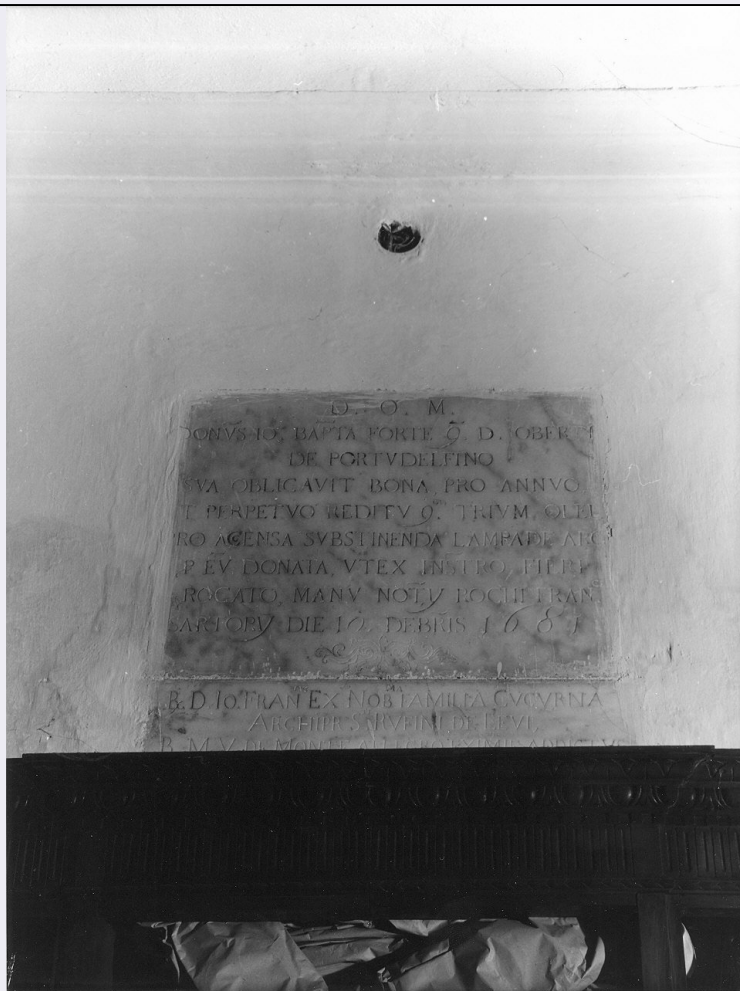 D. O. M.
DONVS·IO. BAPTA FORTE q. D. OBERTI
DE PORTVDELFINO
SVA OBLIGAVIT BONA, PRO ANNVO
ET PERPETVO REDITV q. TRIVM, OLEI
PRO ACENSA SVBSTINENDA LAMPADE
P EV DONATA, VTEX INSTRO. FIERI
ROGATO, MANV NOTY ROCHI FRAN
SARTORY DIE 10. DEBRIS 1681
B. D. IO. FRAN EX NOB FAMILIA CVCVRNA
ARCHIPR S. RVFINI DE LEVI
B. M. V. DE MONTE